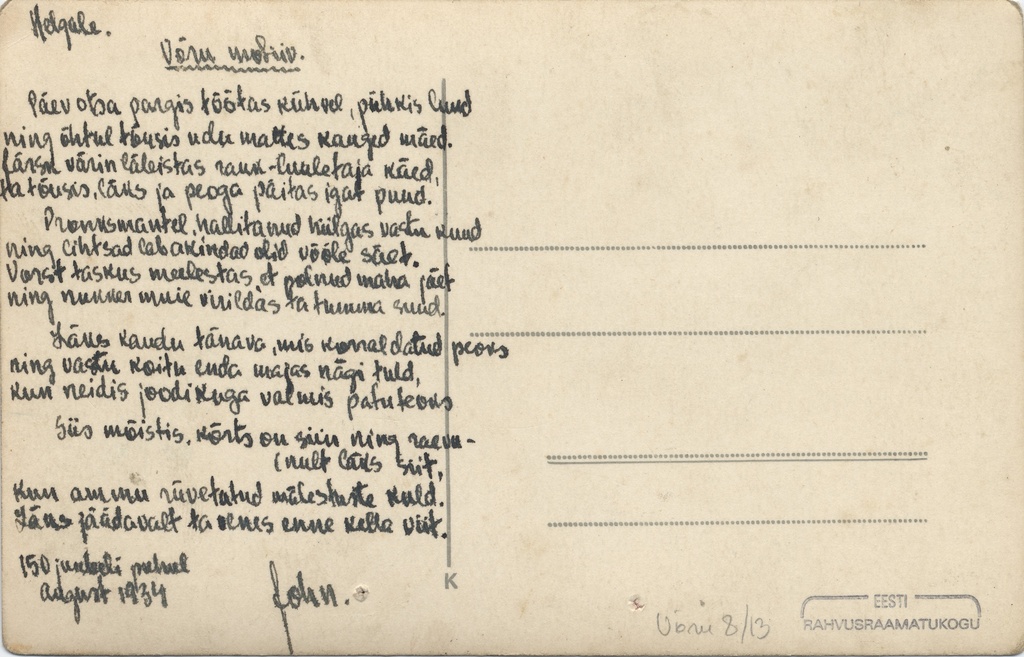 Helgale.
Võru motiiv.
Päev otsa pargis töötas kühvel, pühkis luud
ning õhtul tõusis udu mattes kauged mäed.
Färsk värin läbistas rauk-luuletaja käed,
ta tõusis, läks ja peoga päitas igat puud.
Pronksmantel, hallitanud hiilgas vastu kuud
ning lihtsad labakindad olid vööle säet.
Vorst taskus meelestas, et polnud maha jäet
ning nukker muie virildas ta tumma suud.
Läks kaudu tänava, mis korraldatud peoks
ning vastu koitu enda majas nägi tuld,
kun neidis joodikuga valmis patuteoks
Siis mõistis, kõrts on siin ning raevu-
(nult läks siit,
kun ammu rüvetatud mälestuste kuld.
Läks jäädavalt ta enne kella viit.
150 juubeli puhul
august 1934
John.
K
Võru 8/13
EESTI
RAHVUSRAAMATUKOGU